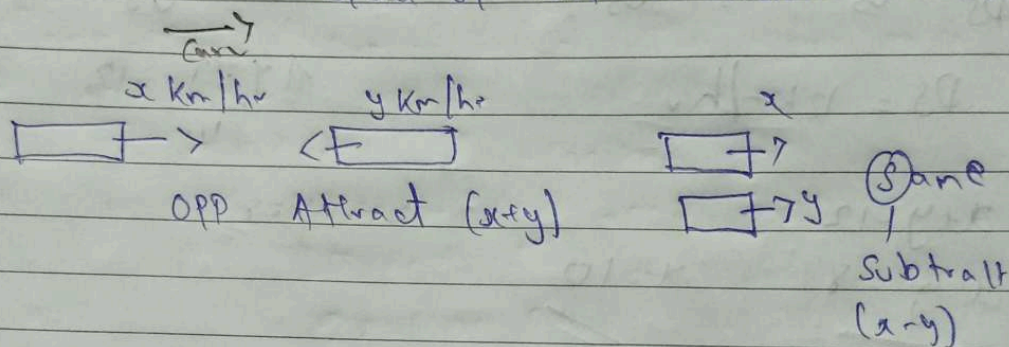 x Km/hr y Km/hr x
OPP Attract (x+y) y Same
Subtract
(x-y)